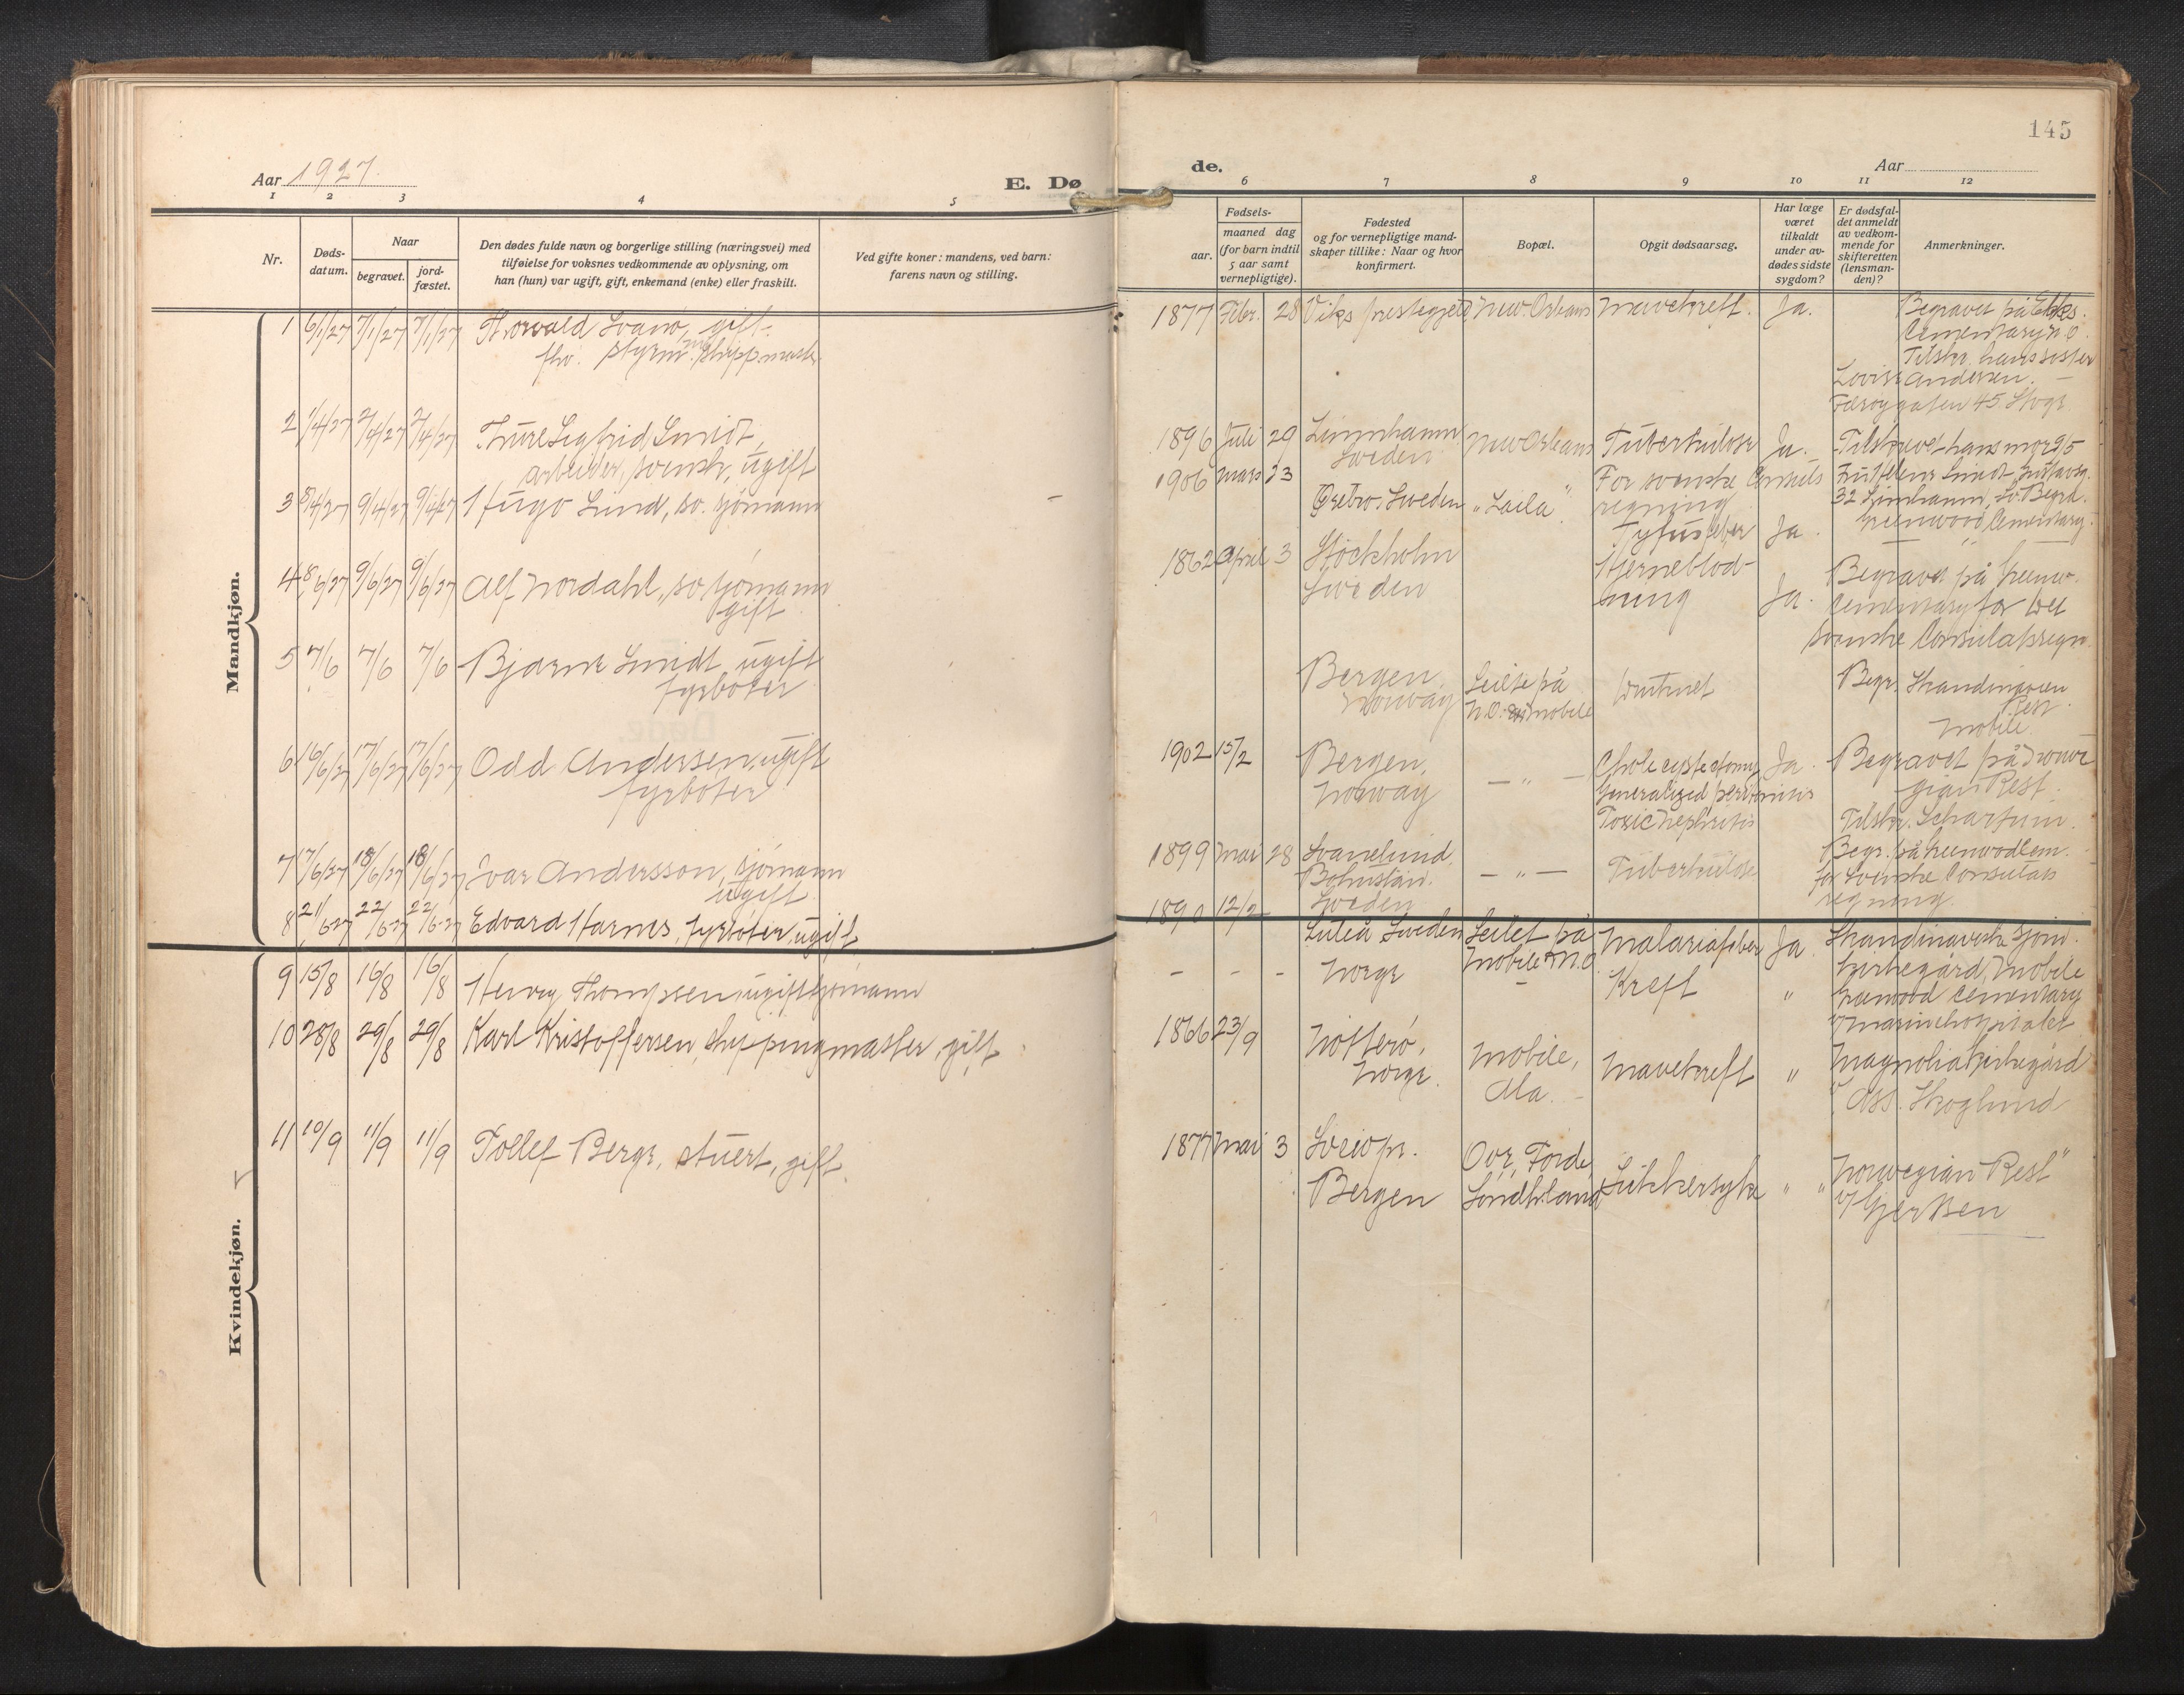 Aar 1927.
E. Dø
1 2 3 4 5
Nr.
Døds-
datum.
Naar
begravet.
jord-
fæstet.
Den dødes fulde navn og borgerlige stilling (næringsvei) med
tilføielse for voksnes vedkommende av oplysning, om
han (hun) var ugift, gift, enkemand (enke) eller fraskilt.
Ved gifte koner: mandens, ved barn:
farens navn og stilling.
Mandkjøn.
1 6/1/27 7/1/27 7/1/27 Thorvald Svanø, gift
fhv. styrm. Shippmaster
2 1/4/27 2/4/27 2/4/27 Thure Sigfrid Smidt,
arbeider, svensk, ugift
3 8/4/27 9/4/27 9/4/27 Hugo Lind, sv. sjømann –
4 8/6/27 9/6/27 9/6/27 Alf Nordahl, sv. sjømann
gift
5 7/6 7/6 7/6 Bjarne Smidt, ugift
fyrbøter
6 16/6/27 17/6/27 17/6/27 Odd Andersen, ugift
fyrbøter
7 17/6/27 18/6/27 18/6/27 Ivar Andersson, sjømann
ugift
8 21/6-27 22/6-27 22/6-27 Edvard Harnes, fyrbøter, ugift
9 15/8 16/8 16/8 Hervey Thompsen, ugift sjømann
10 28/8 29/8 29/8 Karl Kristoffersen, shippingmaster, gift
11 10/9 11/9 11/9 Tollef Berge, stuert, gift.
Kvindekjøn.
145
de.
Aar
6 7 8 9 10 11 12
Fødsels-
aar.
maaned dag
(for barn indtil
5 aar samt
vernepligtige).
Fødested
og for vernepligtige mand-
skaper tillike: Naar og hvor
konfirmert.
Bopæl.
Opgit dødsaarsag.
Har læge
været
tilkaldt
under av-
dødes sidste
sygdom?
Er dødsfal-
det anmeldt
av vedkom-
mende for
skifteretten
(lensman-
den)?
Anmerkninger.
1877 Febr. 28 Viks prestegjeld New Orleans Mavekreft. Ja. Begravet på Elks
Cementary N.O.
Tilskr. hans søster
Lovise Andersen. –
Færøygaten 45. Stvgr.
1896 Juli 29 Limnhamn New Orleans Tuberkulose Ja. Tilskrevet hans mor 9/5
Sweden
Fru Helene Smidt, Gustavsg.
1906 Mars 23 Ørebro. Sweden "Laila" For svenske Consuls
regning
32 Limhamn, Sv. Begrd.
Greenwood Cementary.
Tyfusfeber Ja.
1862 April 3 Stockholm
Sweden
Hjerneblød-
ning Ja.
Begravet på Greenw.
Cementary for det
svenske Consulatsregn.
Bergen,
Norway
Seilte på
N.O. Mobile
Druknet
Begr. Skandinavien
Rest.
Mobile.
1902 15/2 Bergen,
Norway
– " – Cholecystectomy Ja
Generalized peritonitis
Toxic Nephritis
Begravet på Norwe
gian Rest.
Tilskr. Schartum.
1899 Mai 28 Svanelund,
Bohuslän.
Sweden
– " – Tuberkulose
Begr. på Greenwood Cem.
for Svenske Consulats
regning.
1890 12/2 Luleå Sweden Seilet på
Mobile & N.O.
Malariafeber Ja. Skandinaviske Sjøm.
kirkegård, Mobile
– – – Norge – Kreft " Greenwood Cementary
v/ Marinehospitalet
1866 23/9 Nötterö,
Norge.
Mobile,
Ala. –
Mavekreft " Magnolia Kirkegård
v/ Ass. Skoglund
1877 Mai 3 Sveio pr.
Bergen
Ovr. Førde
Søndhrland
Sukkersyke " " Norwegian Rest"
v/ Gjertsen